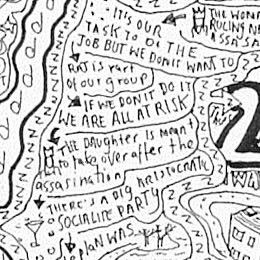 IT'S OUR
TASK TO DO THE
JOB BUT WE DON'T WANT TO
RAT is part
of our group
IF WE DON'T DO IT
WE ARE ALL AT RISK
THE DAUGHTER is meant
to take over after the
assasination
THERE'S A BIG ARISTOCRATIC
SOCIALITE PARTY
PLAN WAS
THE
RULING
2